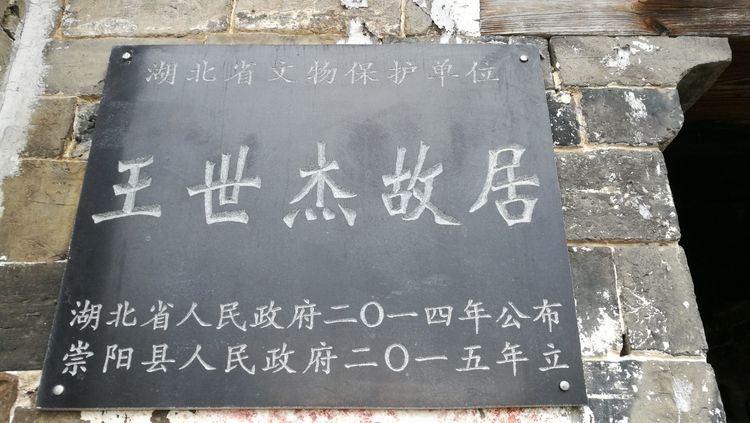 湖北省文物保护单位
王世杰故居
湖北省人民政府二〇一四年公布
崇阳县人民政府二〇一五年立